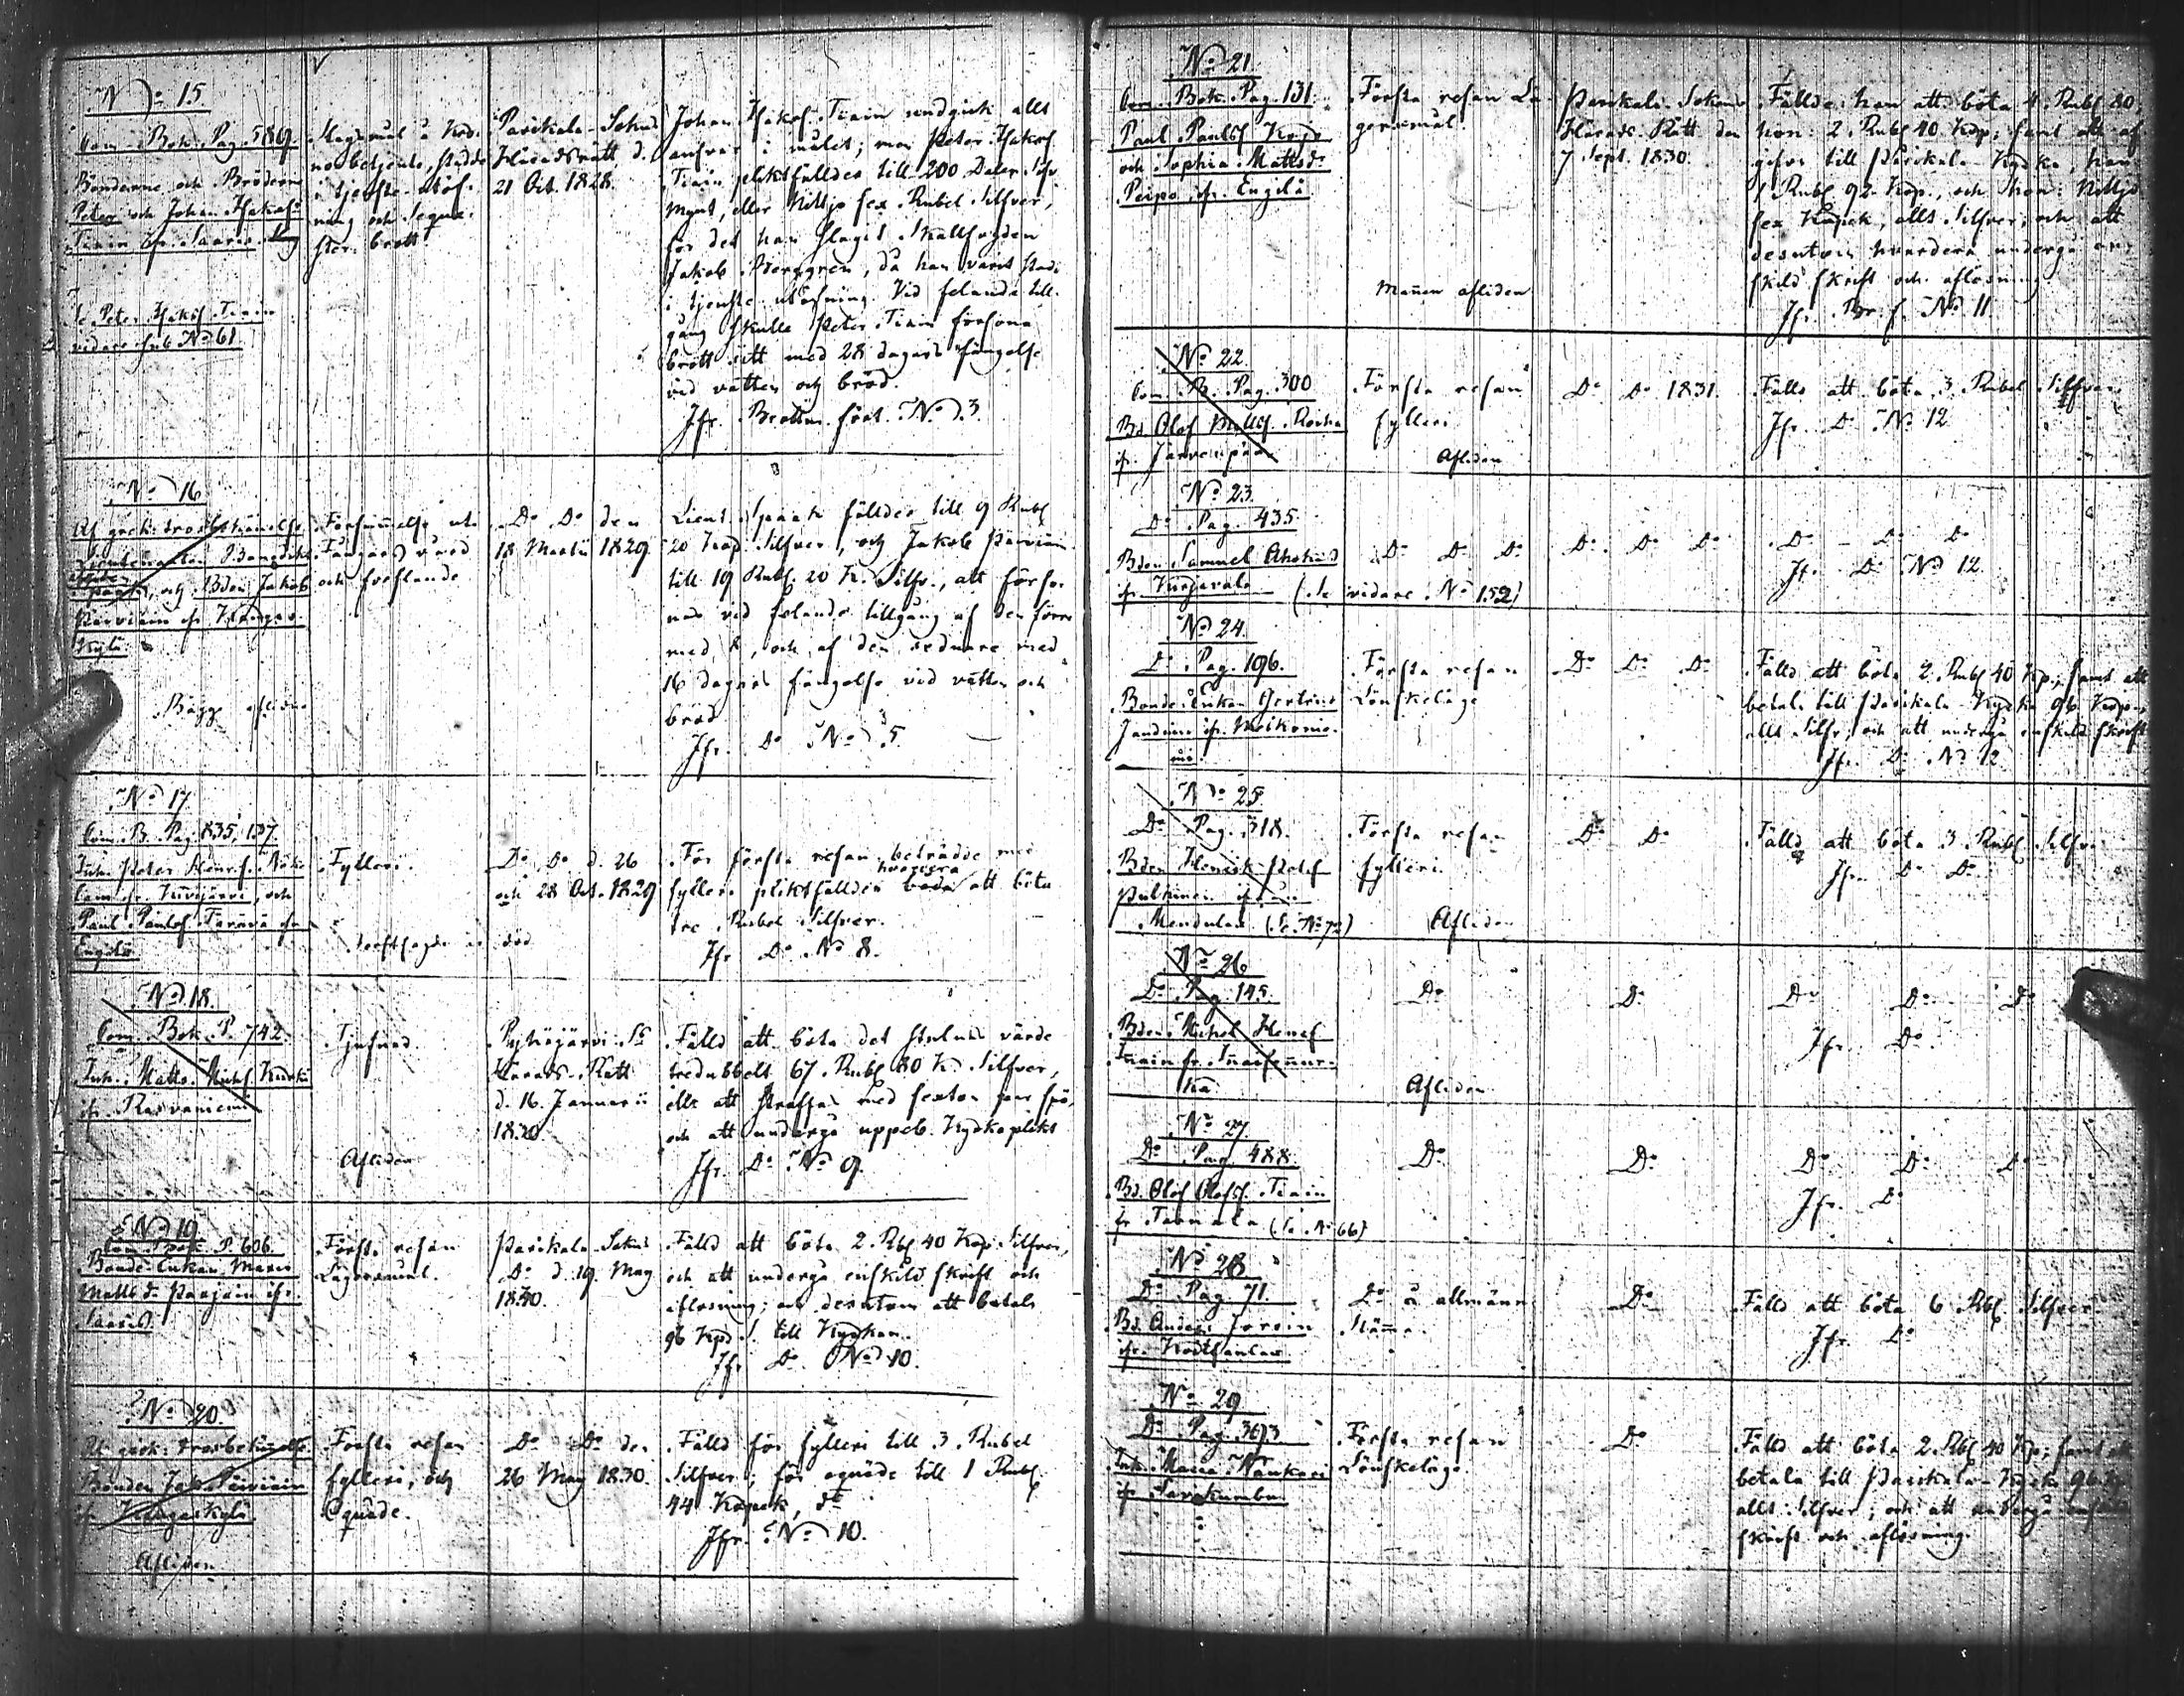 No 15
Com. Bok. Pag. 589.
Bönderne och Bröderne
Peter och Johan Isaksf.
Tiain fr. Saaris
Se Peter Isaksf. Tiain
vidare sub No 61.
Slagsmål å
betjente, stadde
i tjenste
ning och
brott
Parikala Sokns
Häradsrätt d.
21 Oct. 1828.
Johan Isaksf. Tiain undgick allt
ansvar i målet; men Peter Isaksf.
Tiain pliktfälldes till 200 Daler Silfv.
Mynt, eller Nittjo sex Rubel Silfver,
för det han slagit Skallfogden
Jakob Berggren, då han varit stadd
i tjenste utöfning. Vid felande till-
gång skulle Peter Tiain försona
brott sitt med 28 dagars fängelse
vid vatten och bröd.
Jfr. Brottm. fört. No 3.
No 16
Af grek: trosbekännelse
Lieutenanten Benedikt
Spaak, och Bden Jakob
Pärviäin fr. Kangas-
kylä.
Bägge aflidne
Försummelse uti
Fångars vård
och
Do Do den
18 Martii 1829
Lieut. Spaak fälldes till 9 Rubl.
20 Kop. Silfver, och Jakob Pärviäin
till 19 Rubl. 20 K. Silfv., att förso-
nas vid felande tillgång af den förre
med 8, och af den sednare med
16 dagars fängelse vid vatten och
bröd.
Jfr. Do No 5.
No 17
Com. B. Pag. 835, 137.
Inh. Peter Henrsf.
fr. och
Paul Paulsf. fr.
Engilä
Fylleri.
är död
Do Do d. 26
och 28 Oct. 1829
För första resan beträdde med
fylleri pliktfälldes hvardera att böta
tre Rubel Silfver.
Jfr Do No 8.
No 18.
Com. Bok. P. 742.
Inh. Matts Michsf. Kurki
fr. Rasvaniemi
Tjufnad.
Afliden
Pyhäjärvi Sns
Härads Rätt
d. 16. Januarii
1830.
Fälld att böta det stulnas värde
tredubbelt 67 Rubl. 80 K. Silfver,
eller att straffas med sexton par spö,
och att undergå uppenb. Kyrkoplikt
Jfr. Do No 9.
No 19
Com. Bok. P. 606
Bonde Enkan Maria
Matts dr. Paajain fr.
Saaris.
Första resan
Lägersmål.
Parikala Sokns
Do d. 19. May
1830.
Fälld att böta 2 Rbl. 40 Kop. Silfver,
och att undergå enskild skrift och
aflösning; och desutom att betala
96 Kop. S. till Kyrkan.
Jfr Do No 10.
No 20.
Af grek: trosbekännelse
Bonden Jak. Pärviäin
fr. Kangaskylä
Afliden
Första resan
fylleri, och
oquäde.
Do Do den
26 May 1830.
Fälld för fylleri till 3 Rubel
Silfver; för oquäde till 1 Rubl.
44 Kopek, Do
Jfr. No 10.
No 21
Com. Bok. Pag. 131.
Paul Paulsf.
och Sophia Mattsdr.
Peipo, fr. Engilä
Första resan Lä-
gersmål.
Mannen afliden
Parikala Sokns
Härads Rätt den
7 Sept. 1830.
Fälldes han att böta 4 Rubl. 80
hon: 2 Rubl. 40 Kop; samt att af-
gifva till Parikala Kyrka, han
1 Rubl. 92 Kop., och hon: Nittjo
sex Kopek, allt Silfver, och att
desutom hvardera undergå en-
skild skrift och aflösning
Jfr. Br. f. No 11.
No 22.
Com. B. Pag. 300
Bd. Olof
fr. Järvenpää
Första resan
fylleri
Afliden
Do Do 1831.
Fälld att böta 3 Rubel Silfver.
Jfr. Do No 12
No 23.
Do Pag. 435.
Bden Samuel
fr. Kirjavala (Se vidare No 152)
Do Do Do
Do Do Do
Do Do Do
Jfr. Do No 12
No 24.
Do Pag. 196.
Bonde Enkan Gertrud
fr.
Första resan
Lönskeläge
Do Do Do
Fälld att böta 2 Rubl. 40 Kp.; samt att
betala till Parikala Kyrka 96 Kop.
allt Silfv., och att undergå enskild skrift
Jfr. Do No 12
No 25.
Do Pag. 318.
Bden Henrik
Pulkinen
Mendulax (Se No 72)
Första resan
fylleri.
Afliden
Do Do
Fälld att böta 3 Rubl. Silfv.
Jfr. Do Do
No 26
Do Pag. 145.
Bden Michel Henrsf.
Inain fr.
ka
Do
Afliden
Do
Do Do Do
Jfr. Do
No 27
Do Pag. 488.
Bd. Olof Olofsf. Tiain
fr. Tarnala (Se No 66)
Do
Do
Do Do Do
Jfr. Do
No 28
Do Pag. 71.
Bd. Anders
fr.
Do å allmänn
Stämma.
Do
Fälld att böta 6 Rbl. Silfver
Jfr. Do
No 29
Do Pag. 3673.
Inh. Maria
fr. Sarikumbu
Första resan
Lönskeläge.
Do
Fälld att böta 2 Rbl. 40 Kp; samt att
betala till Parikala Kyrka 96 Kp
allt Silfver; och att undergå enskild
skrift och aflösning.